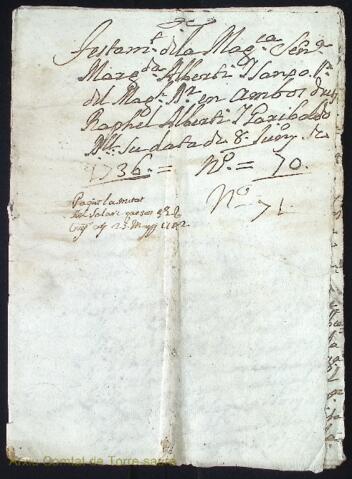 Testamt. de la Magca. Senra.
Margda. Alberti y Sanço
del Magc. Dr. en ambos drets
Raphel Alberti y Garibaldo
su data de 8. Juny de
1736. = No. = 70.
No. 71.
Pagat la mitat
del Salari
Arxiu Comtal de Torre-saura